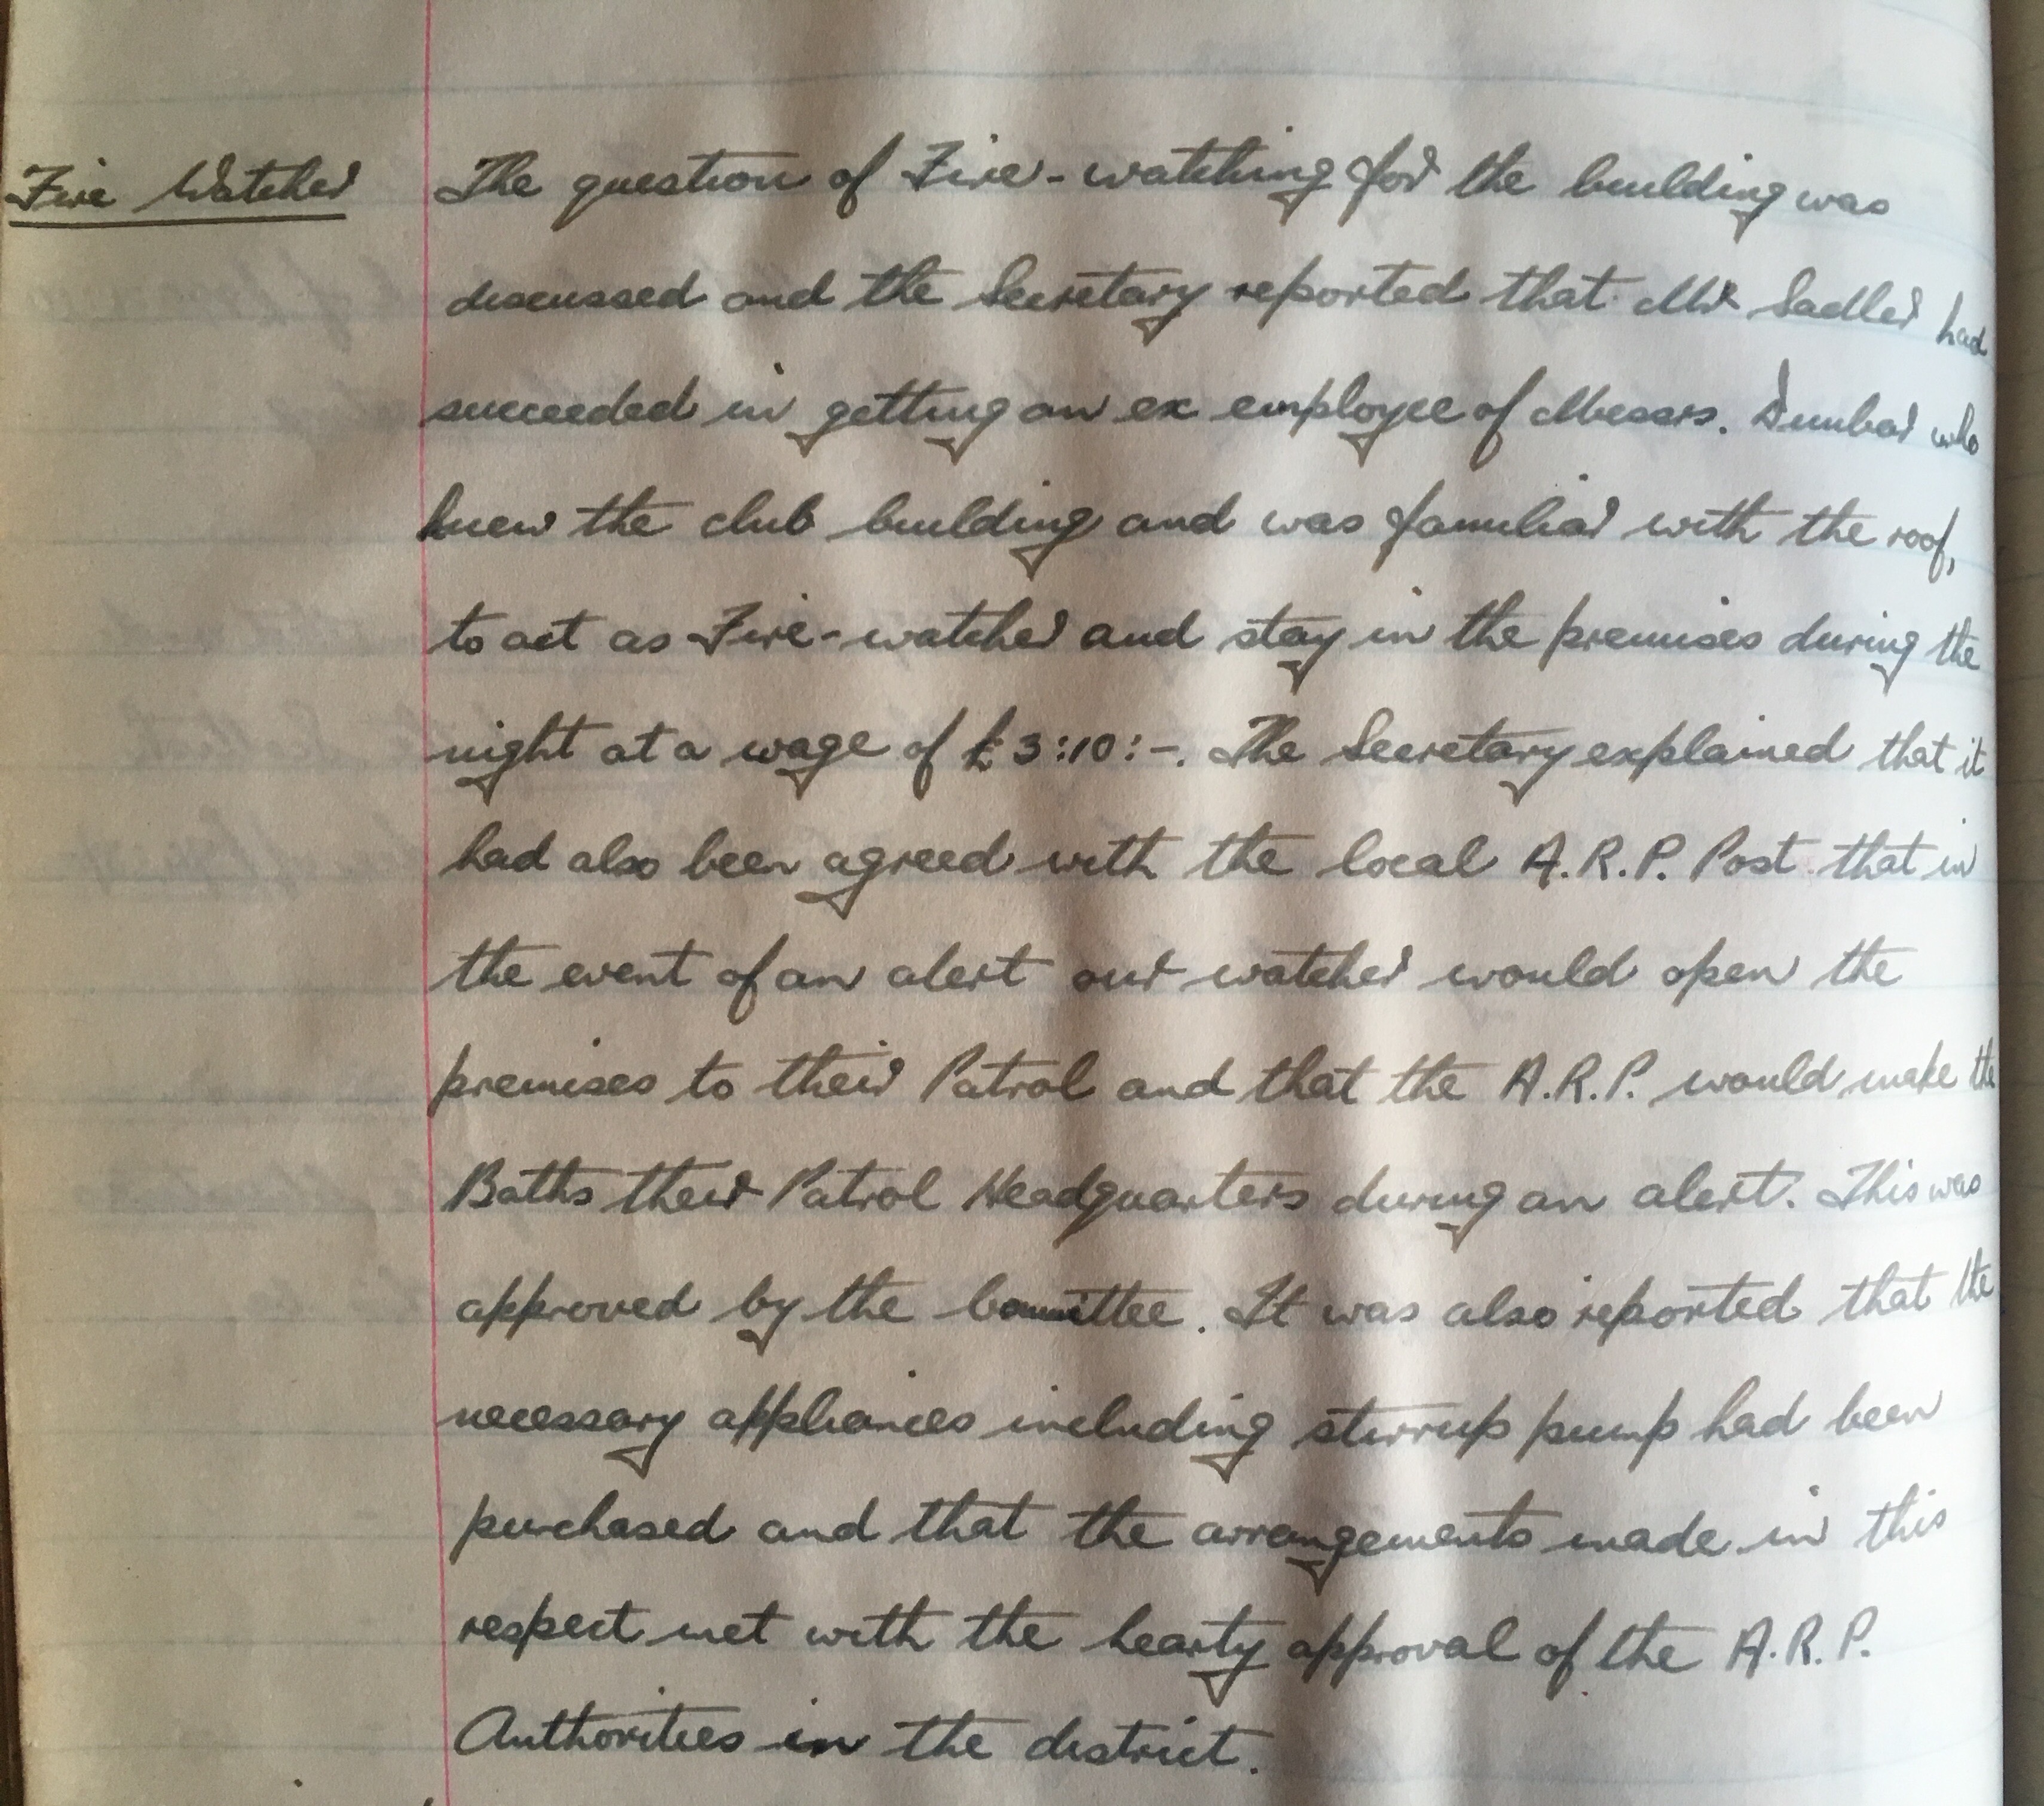 Fire Watcher
The question of Fire-watching for the building was
discussed and the Secretary reported that Mr Sadler had
succeeded in getting an ex employee of Messrs. Dunbar who
knew the club building and was familiar with the roof,
to act as Fire-watcher and stay in the premises during the
night at a wage of £3:10:-. The Secretary explained that it
had also been agreed with the local A.R.P. Post that in
the event of an alert our watcher would open the
premises to their Patrol and that the A.R.P. would make the
Baths their Patrol Headquarters during an alert. This was
approved by the Committee. It was also reported that the
necessary appliances including stirrup pump had been
purchased and that the arrangements made in this
respect met with the hearty approval of the A.R.P.
Authorities in the district.